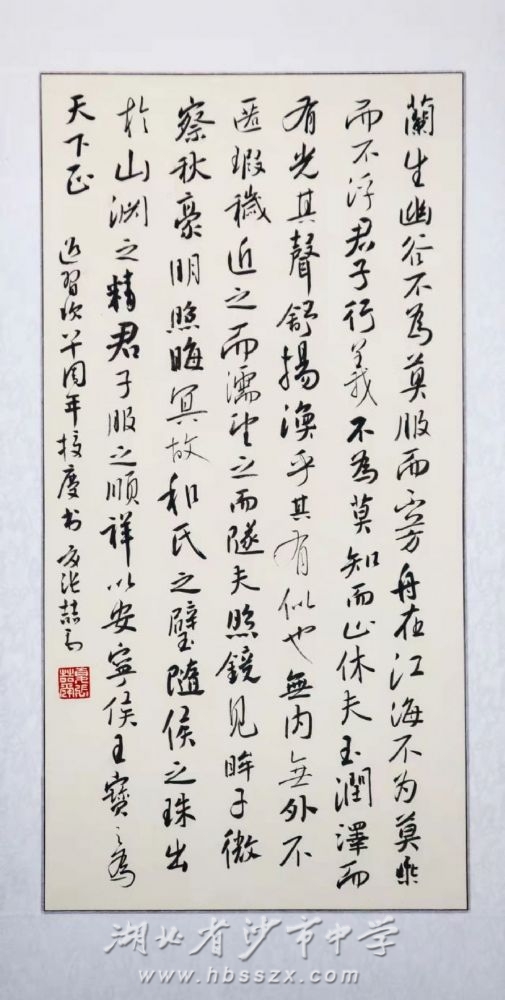 蘭生幽谷不為莫服而不芳舟在江海不为莫乘
而不浮君子行義不為莫知而止休夫玉潤澤而
有光其聲舒揚渙乎其有似也無内無外不
匿瑕穢近之而濡望之而隧夫照鏡見眸子微
察秋豪明照晦冥故和氏之璧隨侯之珠出
於山淵之精君子服之順祥以安寧侯王寶之為
天下正
周年校慶书
湖北省沙市中学
www.hbsszx.com